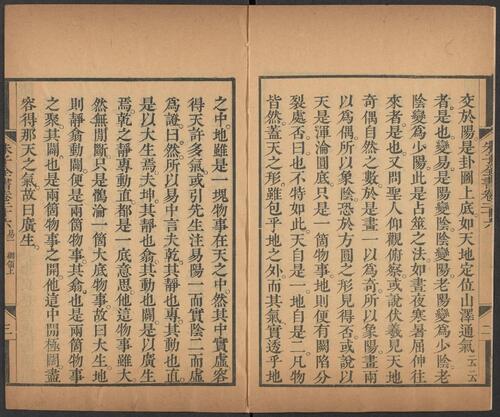 朱子全書卷二十六
二
交於陽是卦圖上底如天地定位山澤通氣云云
者是也變易是陽變陰陰變陽老陽變爲少陰老
陰變爲少陽此是占筮之法如晝夜寒暑屈伸往
來者是也又問聖人仰觀俯察或說伏羲見天地
奇偶自然之數於是畫一以爲奇所以象陽畫兩
以爲偶所以象陰恐於方圓之形見得否或說以
天是渾淪圓底只是一箇物事地則便有闕陷分
裂處否曰也不特如此天自是一地自是二凡物
皆然蓋天之形雖包乎地之外而其氣實透乎地
之中地雖是一塊物事在天之中然其中實虛容
得天許多氣或引先生注易陽一而實陰二而虛
爲證曰然所以易中言夫乾其靜也專其動也直
是以大生焉夫坤其靜也翕其動也闢是以廣生
焉乾之靜專動直都是一底意思他這物事雖大
然無間斷只是鶻淪一箇大底物事故曰大生地
則靜翕動闢便是兩箇物事其翕也是兩箇物事
之聚其闢也是兩箇物事之開他這中間極闊盡
容得那天之氣故曰廣生
朱子全書卷二十六 易一 綱領上
三